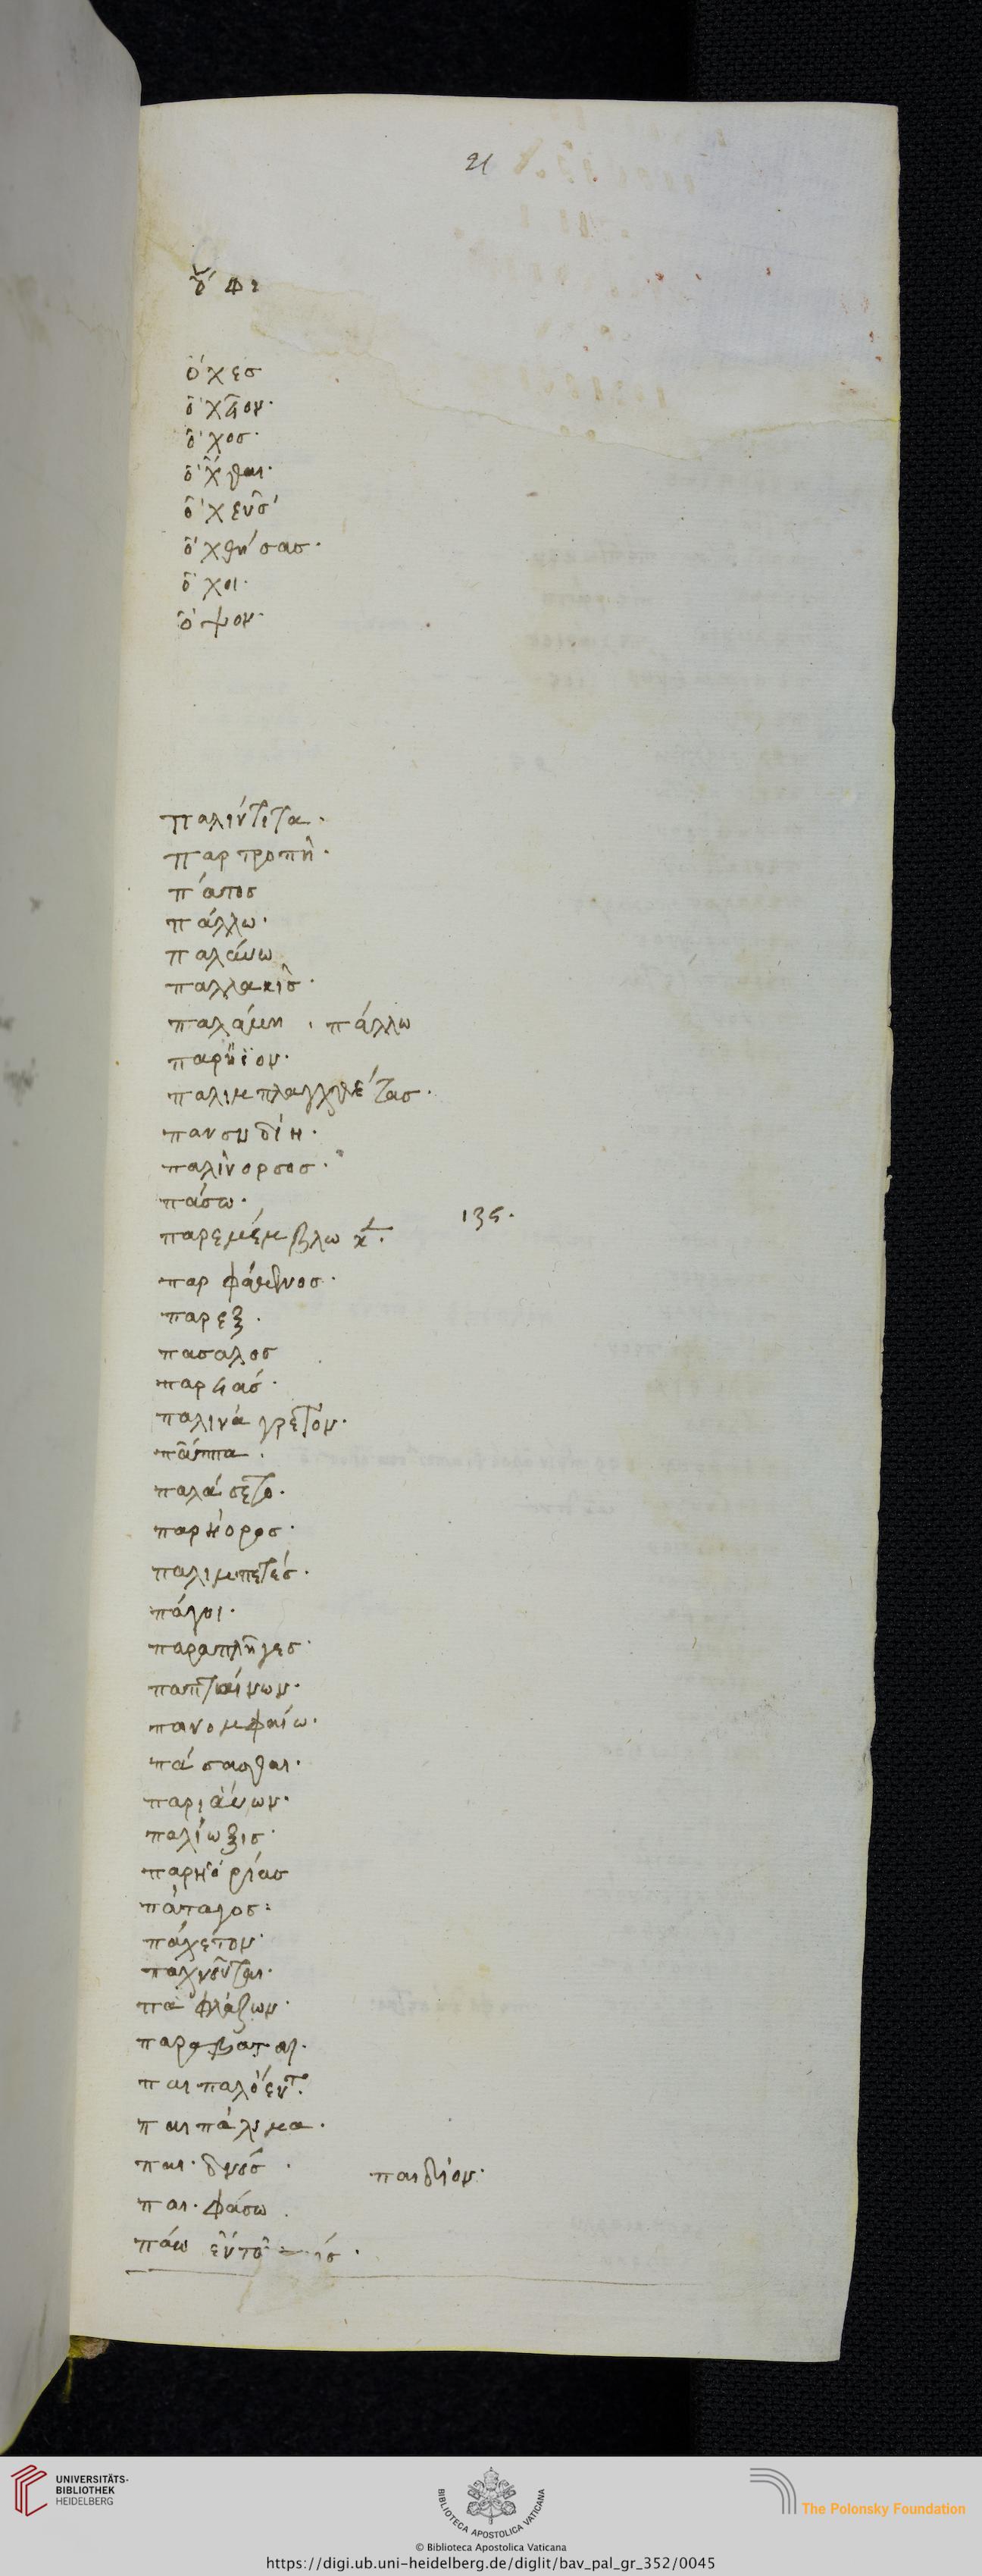 21
ὄχεσ
ὄχθον.
ὄχοσ.
ὄχθαι.
ὀχεῦσ
ὀχθήσασ.
ὄχοι.
ὄψον.
παλίντιτα.
παρτροπη.
πάποσ
πάλλω.
παλάνω
παλλακὶσ.
παλάμη . πάλλω
παρήϊον.
παλιμπλαγχθέτασ.
πανσυδίη.
παλίνορσοσ.
πάσω.
135.
παρφάμενοσ.
παρεξ.
πασαλοσ
παλινάγρετον.
πάμπα.
παλάσετο.
παρήοροσ.
παλιμπετέσ.
πάγοι.
παραπλῆγεσ.
παπταίνων.
πανομφαίω.
πάσασθαι.
παριάνων.
παλίωξισ.
παρηορίασ
πάταγοσ:
πάχετον.
παχνοῦται.
παφλάζων.
παραβαται.
παιπαλόεντ.
παιπάλημα.
παιδνόσ. παιδίον.
παιφάσω.
UNIVERSITÄTS-
BIBLIOTHEK
HEIDELBERG
BIBLIOTECA APOSTOLICA VATICANA
The Polonsky Foundation
© Biblioteca Apostolica Vaticana
https://digi.ub.uni-heidelberg.de/diglit/bav_pal_gr_352/0045